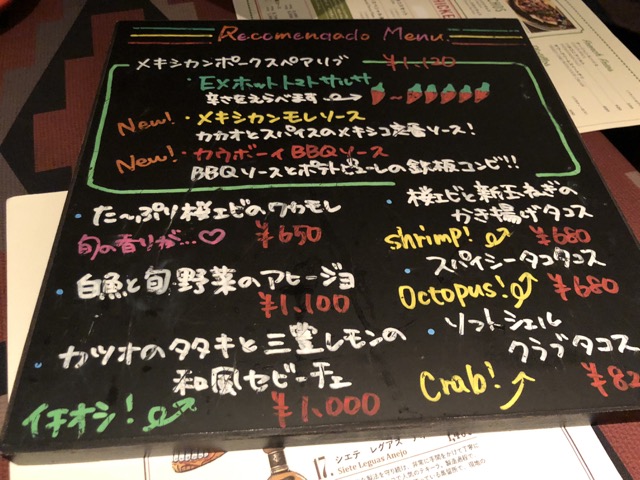 Recomendado Menu.
メキシカンポークスペアリブ ¥1,120
・EXホットトマトサルサ
辛さをえらべます → ~
New! ・メキシカンモレソース
カカオとスパイスのメキシコ定番ソース!
New! ・カウボーイBBQソース
BBQソースとポテトピューレの鉄板コンビ!!
・た〜ぷり桜エビのワカモレ
旬の香りが…♡ ¥650
・白魚と旬野菜のアヒージョ
¥1,100
・カツオのタタキと三豊レモンの
和風セビーチェ
イチオシ! ¥1,000
・桜エビと新玉ねぎの
かき揚げタコス
shrimp! ¥680
・スパイシータコタコス
Octopus! ¥680
・ソフトシェル
クラブタコス
Crab! ¥82
17. シエテ レグアス
Siete Leguas Anejo